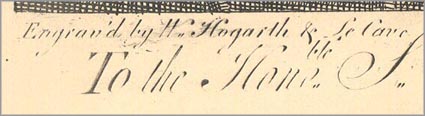 Engrav'd by Wm. Hogarth & Le Cave
To the Honble. S.